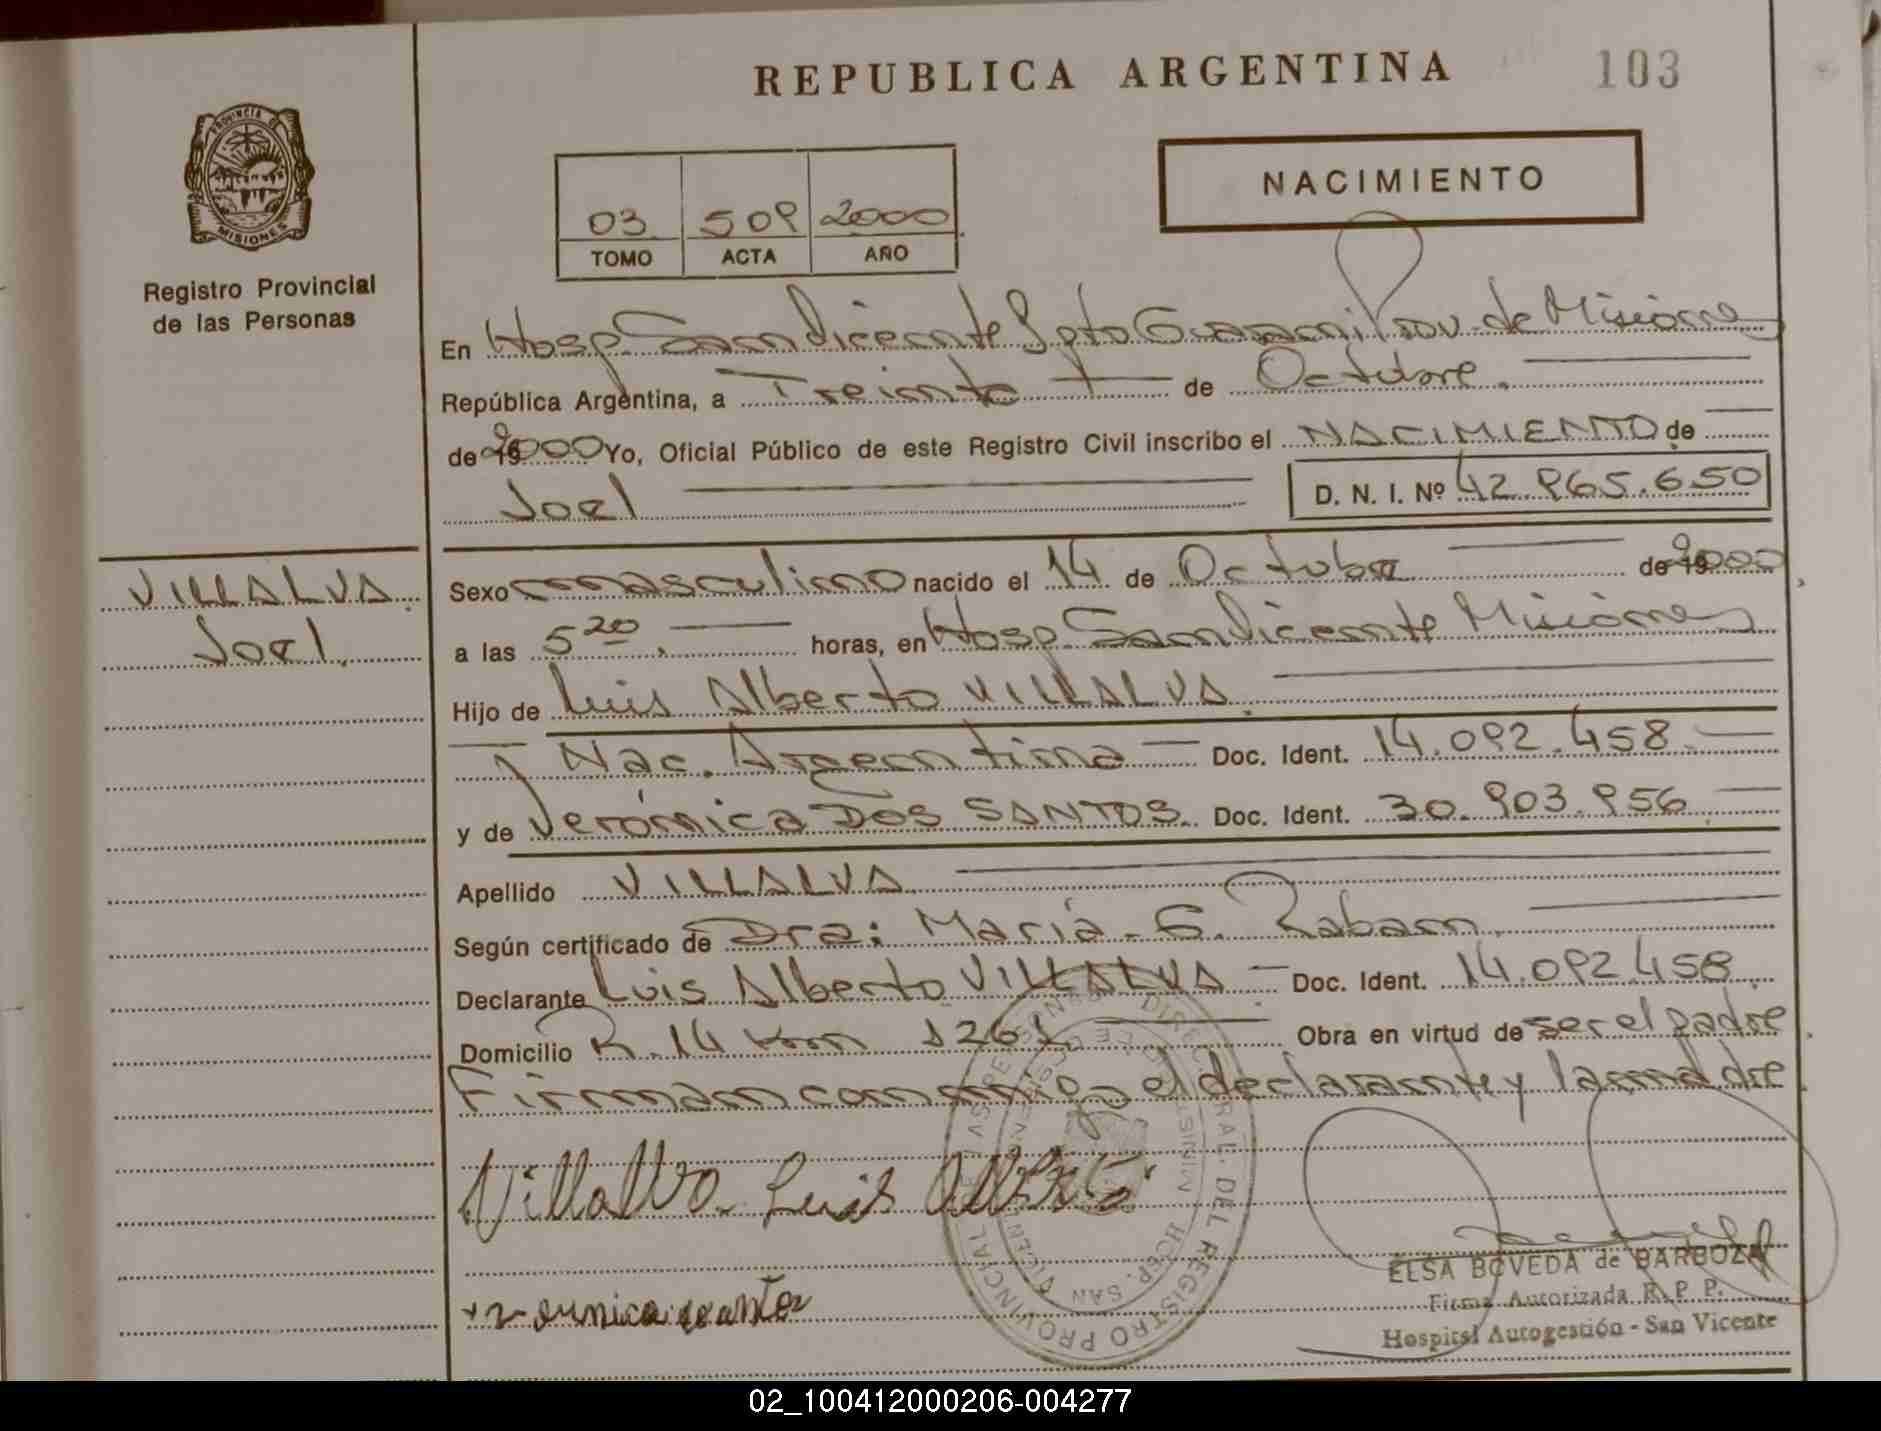 REPUBLICA ARGENTINA
103
PROVINCIA DE
MISIONES
Registro Provincial
de las Personas
NACIMIENTO
03 509 2000
TOMO ACTA AÑO
En Hosp. San Vicente Dpto Guaraní Prov. de Misiones
República Argentina, a Treinta de Octubre.
de 2000 Yo, Oficial Público de este Registro Civil inscribo el NACIMIENTO de
Joel
D. N. I. Nº 42.965.650
VILLALVA
Joel.
Sexo masculino nacido el 14 de Octubre de 2000
a las 5 20. horas, en Hosp. San Vicente Misiones
Hijo de Luis Alberto VILLALVA.
Nac. Argentina Doc. Ident. 14.092.458
y de Verónica DOS SANTOS. Doc. Ident. 30.903.956
Apellido VILLALVA
Según certificado de Dra: María G. Rabam.
Declarante Luis Alberto VILLALVA Doc. Ident. 14.092.458
Domicilio R. 14 Km 1261 Obra en virtud de ser el padre
Firman conmigo el declarante y la madre.
Villalva Luis Alberto
ELSA BOVEDA de BARBOZA
Firma Autorizada R. P. P.
Hospital Autogestión - San Vicente
REGISTRO PROVINCIAL DE LAS PERSONAS
HOSP. SAN
02_100412000206-004277